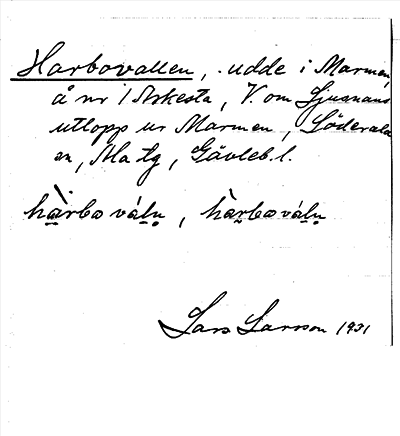 Harbovallen, udde i Marmen,
å nr 1 Arkesta, V. om Ljusnans
utlopp ur Marmen, Söderala
sn, Ala tg, Gävleb. l.
hàrbováln, hàrbováln
Lars Larsson 1931